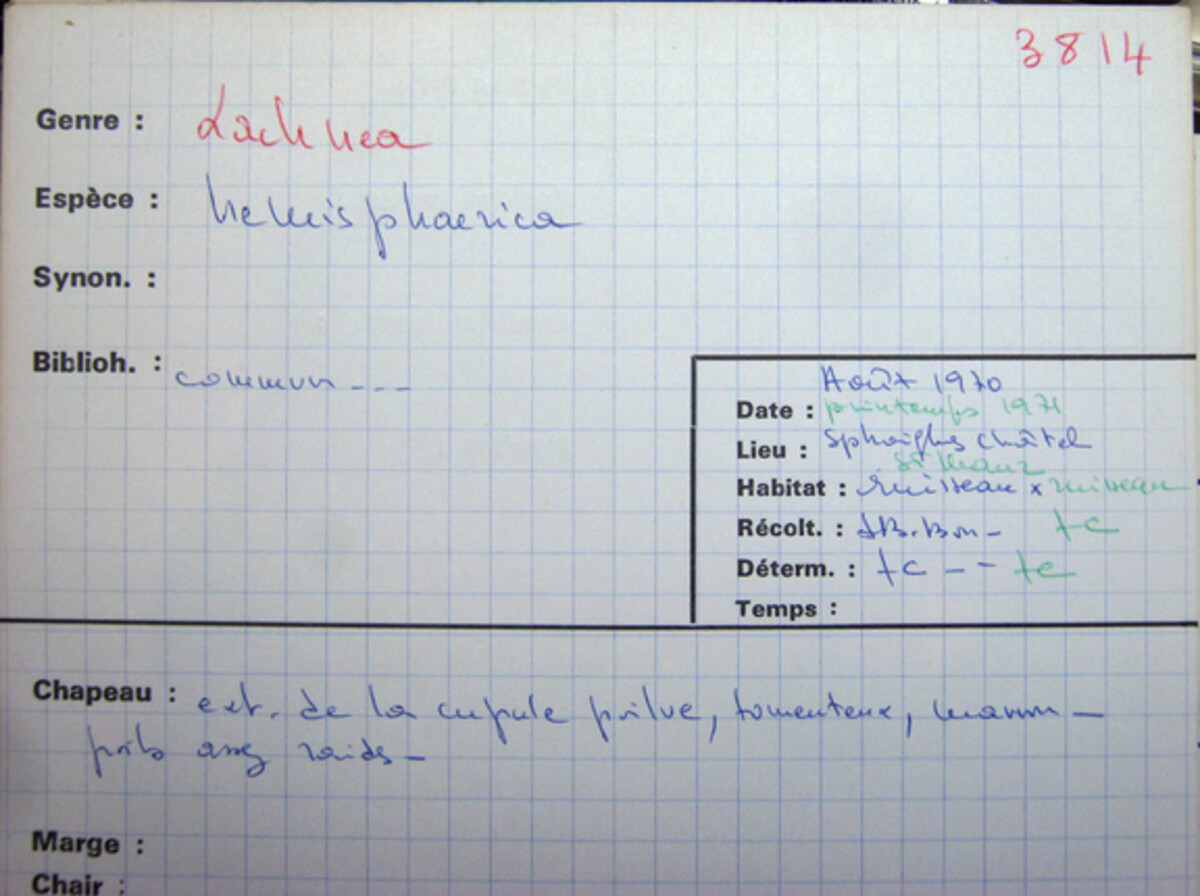 3814
Genre : Lachnea
Espèce : hemisphaerica
Synon. :
Biblioh. : commun - - -
Août 1970
Date : printemps 1971
Lieu : Sphaignes châtel
Habitat : ruisseau x ruisseau
Récolt. : JB. Bon - tc
Déterm. : tc - - tc
Temps :
Chapeau : ext. de la cupule poilue, tomenteux, marron -
poils assez raids -
Marge :
Chair :